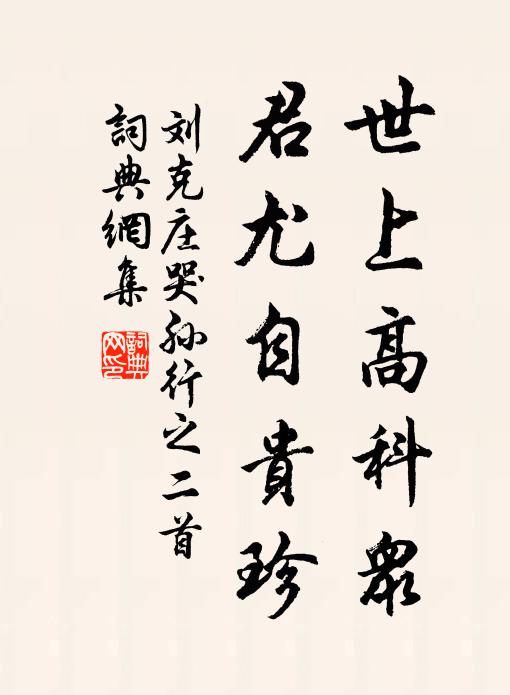 世上高科眾
君尤自貴珍
刘克庄哭孙行之二首
詞典網集
詞典網印